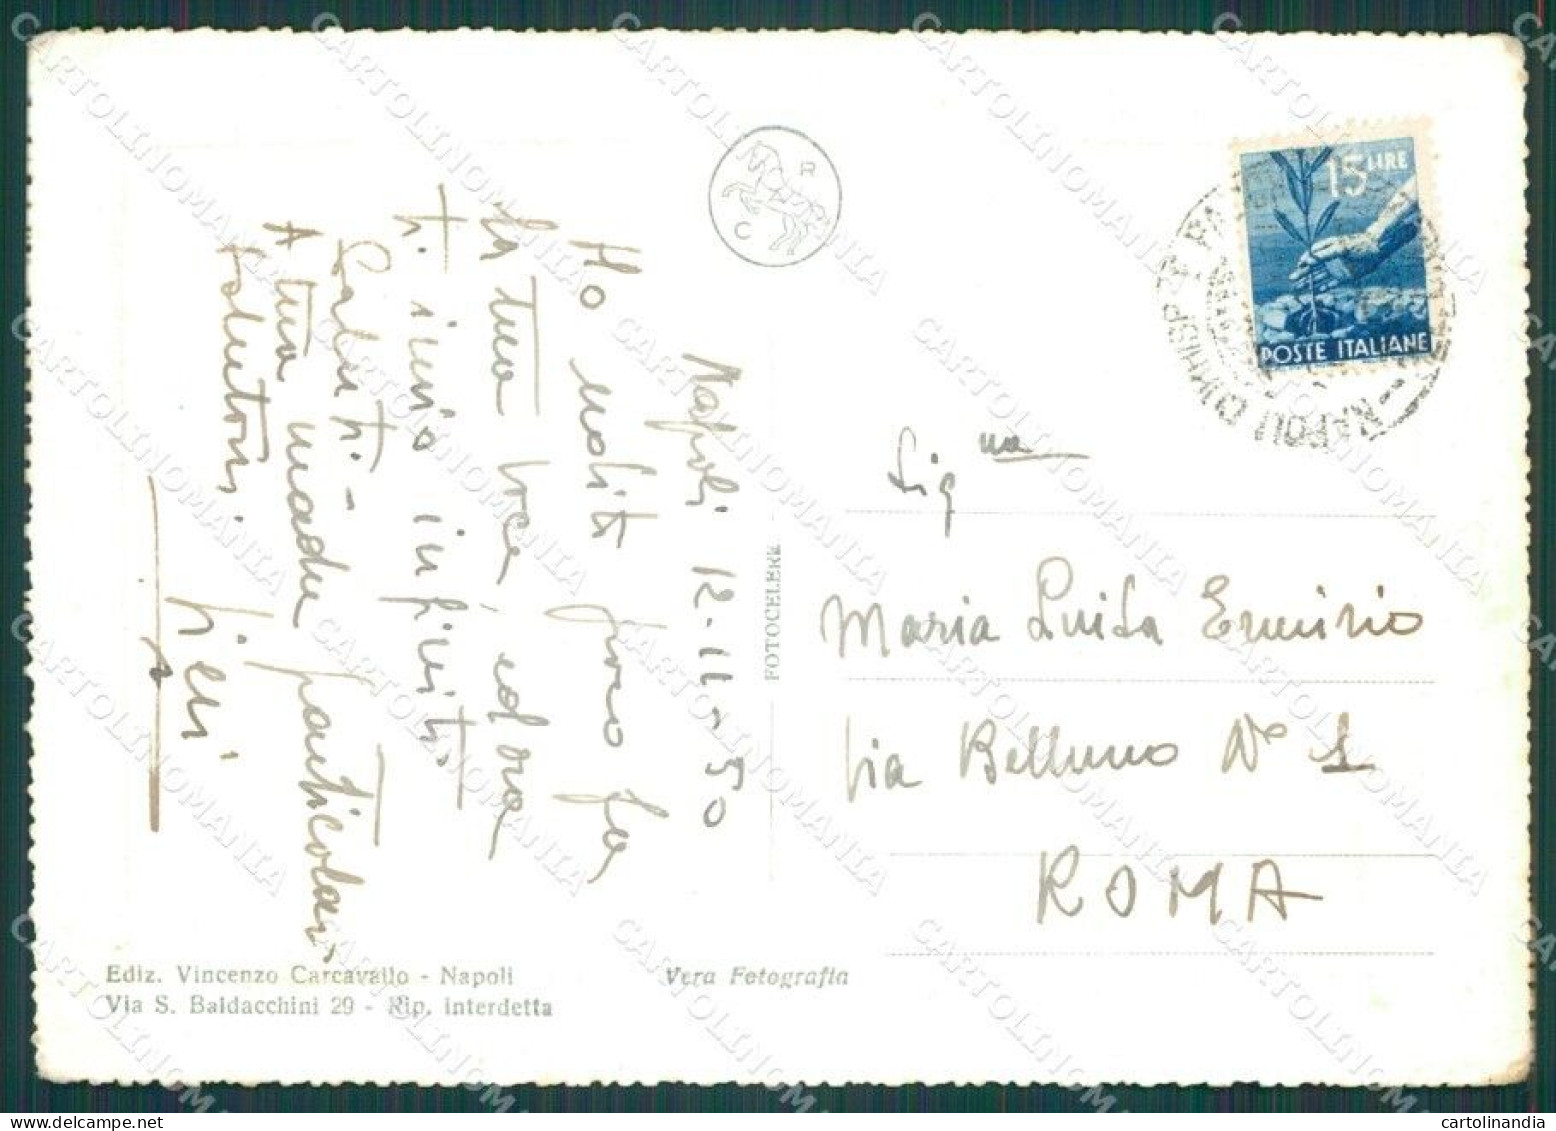 Napoli 12-11-50
Ho udito poco fa
la tua voce, ed ora
ti invio infiniti
Saluti -
A tua madre particolari
salutoni.
V R
C
15 LIRE
POSTE ITALIANE
NAPOLI
Sig.na
Maria Luisa Erminio
Via Belluno N° 1
ROMA
FOTOCELERE
Ediz. Vincenzo Carcavallo - Napoli
Via S. Baldacchini 29 - Rip. interdetta
Vera Fotografia
CARTOLINOMANIA
cartolinandia